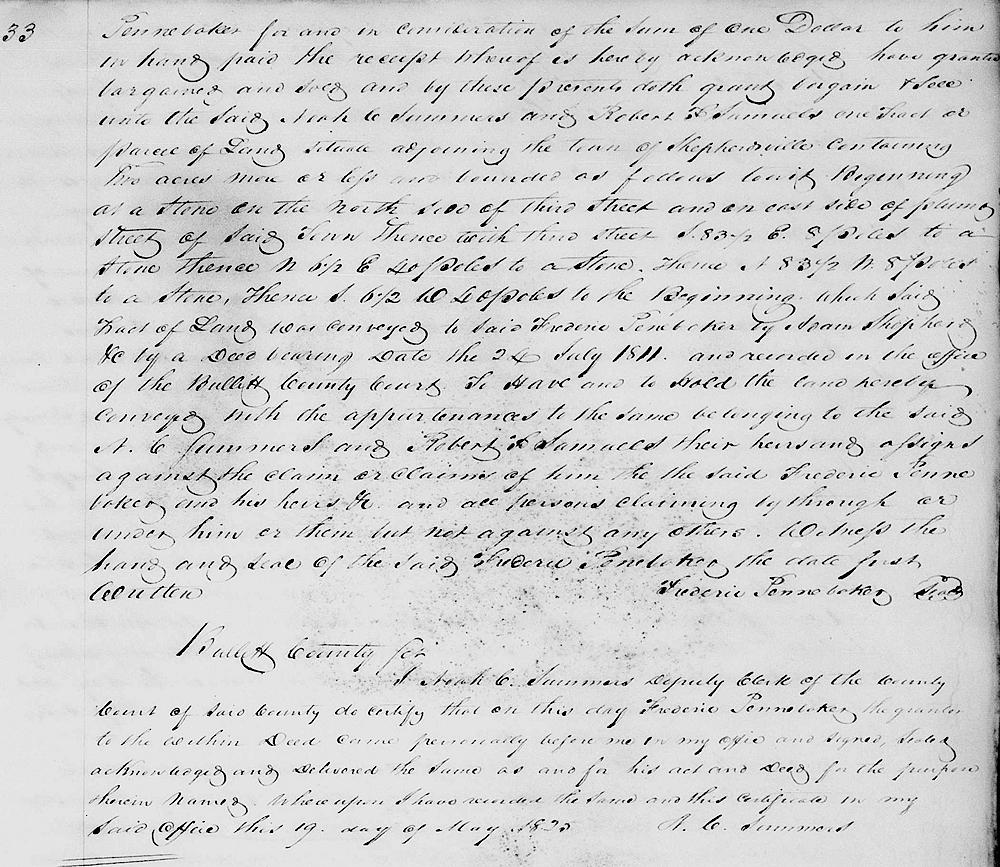 33
Pennebaker for and in consideration of the sum of one Dollar to him
in hand paid the receipt whereof is hereby acknowledged have granted
bargained and sold and by these presents doth grant bargain & sell
unto the said Noah C Summers and Robert F Samuels one tract or
parcel of Land situate adjoining the town of Shepherdsville containing
two acres more or less and bounded as follows towit Beginning
at a Stone on the north side of third street and on east side of plumb
street of said Town thence with third street S. 83 1/2 E. 8 poles to a
stone thence N 6 1/2 E 40 poles to a Stone. thence N 83 1/2 W. 8 poles
to a Stone, thence S. 6 1/2 W 40 poles to the Beginning. which said
tract of Land was conveyed to said Frederic Penebaker by Adam Shepherd
&c by a Deed bearing Date the 24 July 1811. and recorded in the office
of the Bullitt County Court To Have and to hold the land hereby
conveyed with the appurtenances to the same belonging to the said
N. C Summers and Robert F Samuels their heirs and assigns
against the claim or claims of him the the said Frederic Penne
baker and his heirs &c. and all persons claiming by through or
under him or them but not against any others. Witness the
hand and seal of the said Frederic Penebaker the date first
Written Frederic Pennebaker Seal
Bullitt County Sct
I Noah C. Summers Deputy Clerk of the County
Court of said County do certify that on this day Frederic Pennebaker the grantor
to the within Deed came personally before me in my office and signed, sealed
acknowledged and Delivered the same as and for his act and Deed for the purpose
therein Named. Whereupon I have recorded the same and this certificate in my
said office this 19. day of May 1825 N. C. Summers